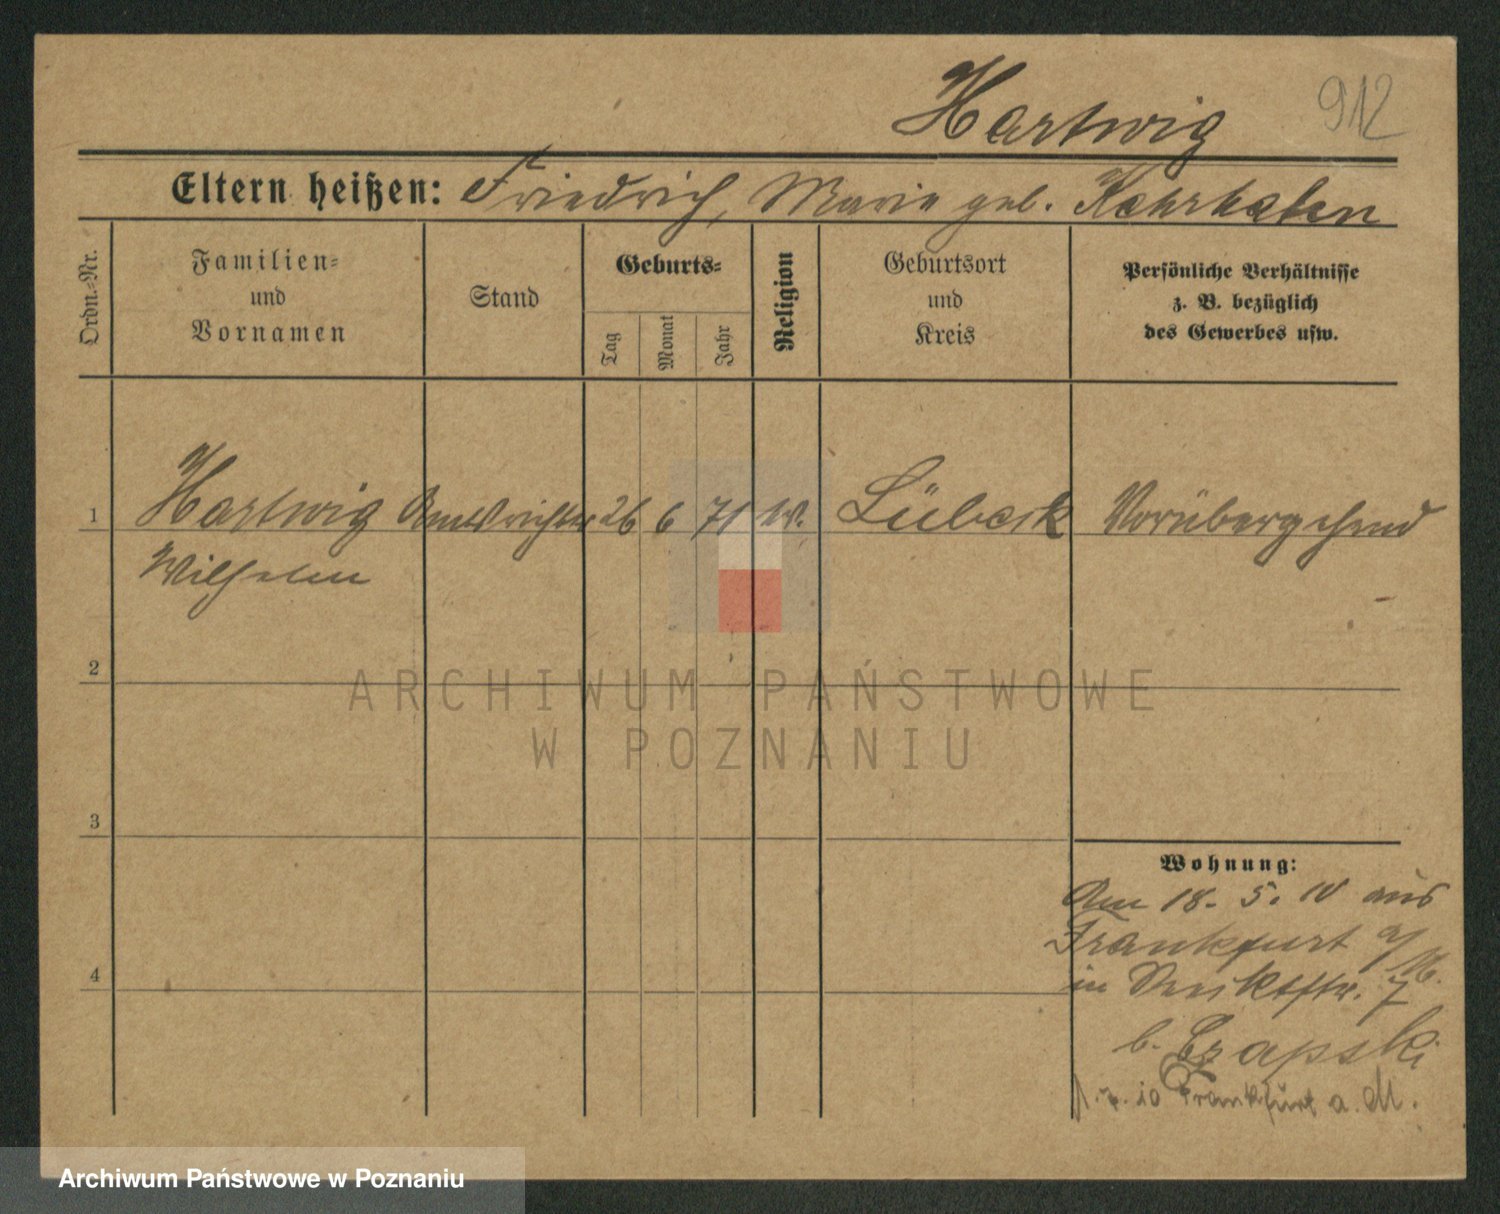 Hartwig 912
Eltern heißen: Friedrich, Marie geb.
Ordn.-Nr.
Familien-
und
Vornamen
Stand
Geburts-
Tag
Monat
Jahr
Religion
Geburtsort
und
Kreis
Persönliche Verhältnisse
z. B. bezüglich
des Gewerbes usw.
1 Hartwig Amtsrichter 26 6 71 Lübeck Vorübergehend
Wilhelm
2
ARCHIWUM PAŃSTWOWE
W POZNANIU
3
Wohnung:
Am 18. 5. 10 aus
Frankfurt a/M.
4
in 7
b. Czapski
1. 7. 10 Frankfurt a. M.
Archiwum Państwowe w Poznaniu